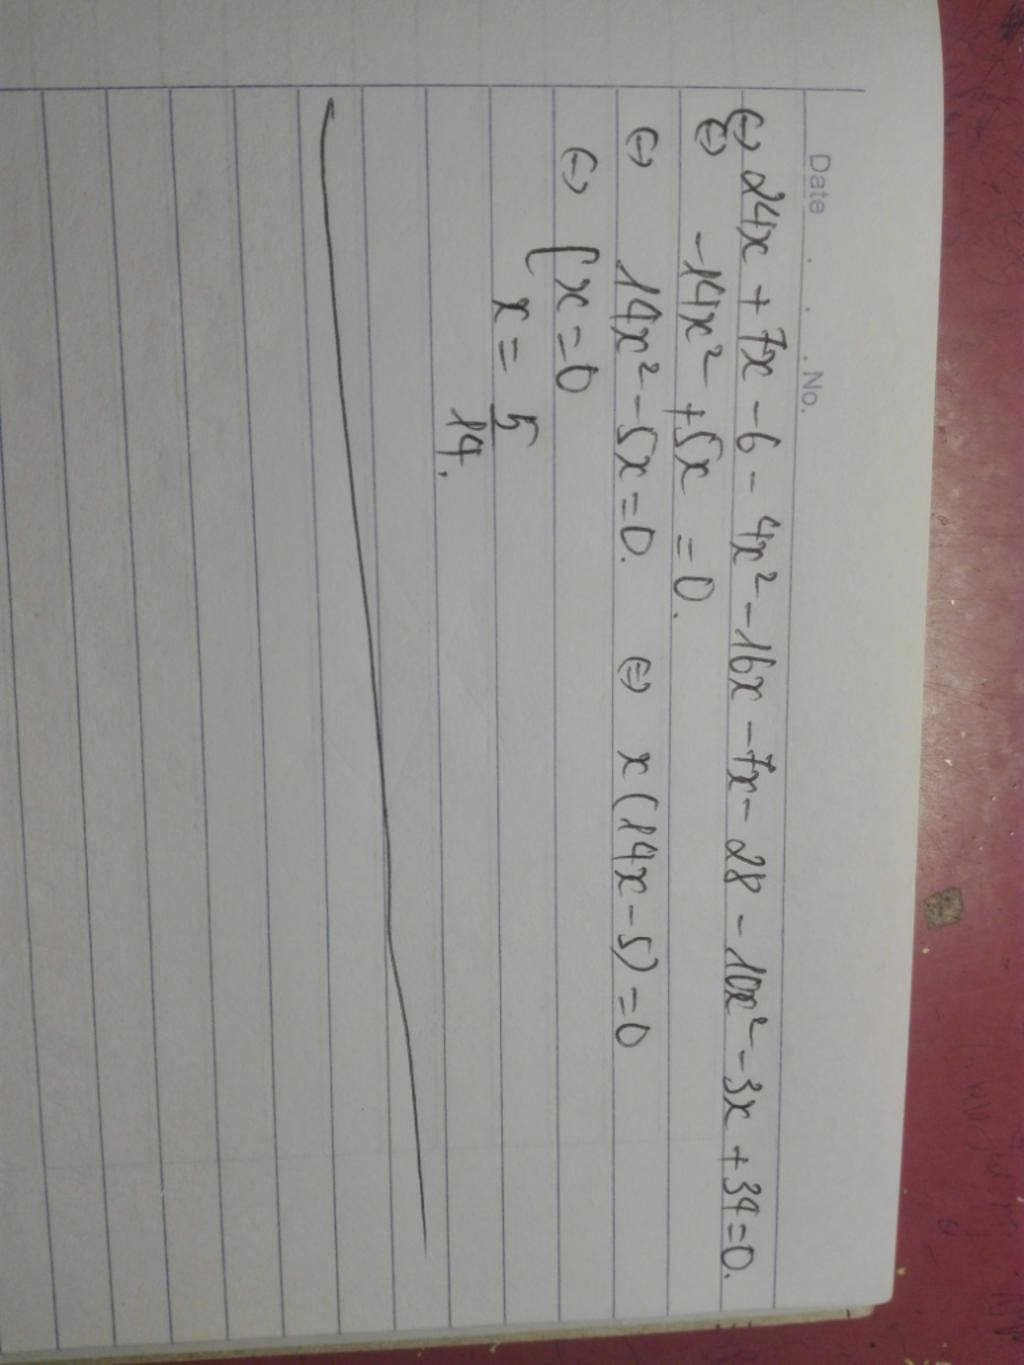 Date . . . No.
⇔ 24x + 7x - 6 - 4x² - 16x - 7x - 28 - 10x² - 3x + 34 = 0.
⇔ -14x² + 5x = 0.
⇔ 14x² - 5x = 0. ⇔ x(14x - 5) = 0
⇔ [ x = 0
x = 5/14.